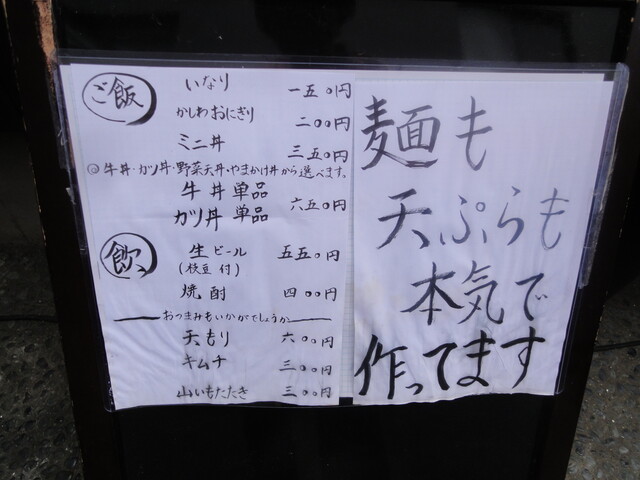 ご飯
いなり 一五〇円
かしわおにぎり 二〇〇円
ミニ丼 三五〇円
◎牛丼・カツ丼・野菜天丼・やまかけ丼から選べます。
牛丼単品
カツ丼単品 六五〇円
飲
生ビール 五五〇円
(枝豆付)
焼酎 四〇〇円
おつまみもいかがでしょうか
天もり 六〇〇円
キムチ 三〇〇円
山いもたたき 三〇〇円
麺も
天ぷらも
本気で
作ってます